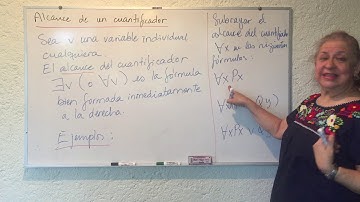 Alcance de un cuantificador
Sea v una variable individual
cualquiera
El alcance del cuantificador
∃v (o ∀v) es la fórmula
bien formada inmediatamente
a la derecha.
Ejemplos:
Subrayar el
alcance del cuantificador
∀x en las siguientes
fórmulas:
∀x Px
Qy)
∀xPx